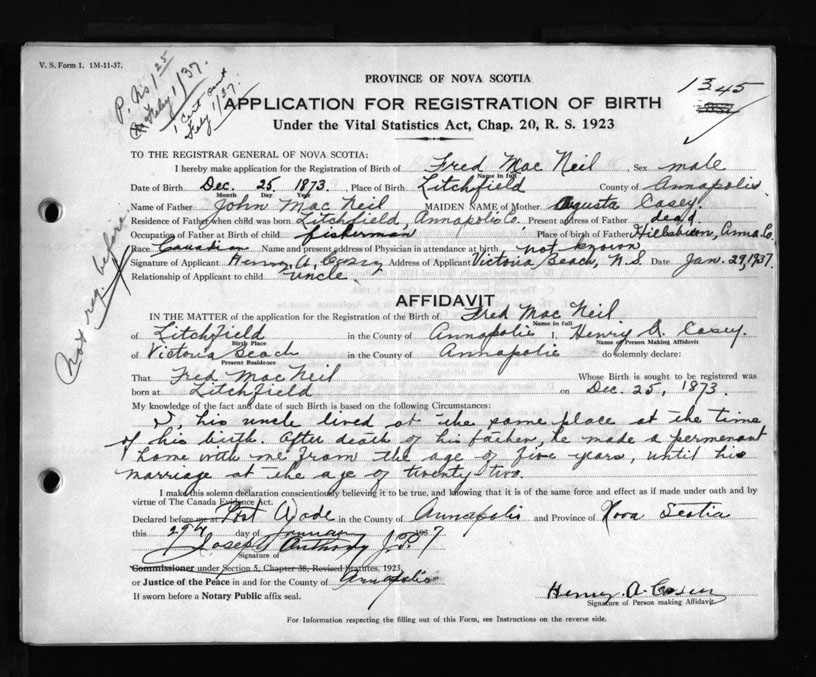 V. S. Form 1. 1M-11-37.
P. No 1 25
Feby 1/37.
1 Cert sent
Feby 1/37.
PROVINCE OF NOVA SCOTIA
1345
APPLICATION FOR REGISTRATION OF BIRTH
Under the Vital Statistics Act, Chap. 20, R. S. 1923
TO THE REGISTRAR GENERAL OF NOVA SCOTIA:
I hereby make application for the Registration of Birth of Fred Mac Neil, Sex male
Name in full
Date of Birth Dec. 25, 1873, Place of Birth Litchfield County of Annapolis.
Month Day Year
Name of Father John Mac Neil MAIDEN NAME of Mother Augusta Casey.
Residence of Father when child was born Litchfield, Annapolis Co. Present address of Father dead.
Occupation of Father at Birth of child fisherman Place of birth of Father Hillsburn, Anna. Co.
Race Canadian Name and present address of Physician in attendance at birth not known
Signature of Applicant Henry A. Casey Address of Applicant Victoria Beach, N.S. Date Jan. 29, 1937.
Relationship of Applicant to child uncle.
Not reg. before
AFFIDAVIT
IN THE MATTER of the application for the Registration of the Birth of Fred Mac Neil
Name in full
of Litchfield in the County of Annapolis I, Henry A. Casey.
Birth Place Name of Person Making Affidavit
of Victoria Beach in the County of Annapolis do solemnly declare:
Present Residence
That Fred Mac Neil Whose Birth is sought to be registered was
born at Litchfield on Dec. 25, 1873.
My knowledge of the fact and date of such Birth is based on the following Circumstances:
I, his uncle lived at the same place at the time
of his birth. After death of his father, he made a permenant
home with me from the age of five years, until his
marriage at the age of twenty two.
I make this solemn declaration conscientiously believing it to be true, and knowing that it is of the same force and effect as if made under oath and by
virtue of The Canada Evidence Act.
Declared before me at Port Wade in the County of Annapolis and Province of Nova Scotia
this 29th day of January 1937
Joseph Anthony J.P.
Signature of
Commissioner under Section 5, Chapter 38, Revised Statutes, 1923
or Justice of the Peace in and for the County of Annapolis
If sworn before a Notary Public affix seal.
Henry. A. Casey
Signature of Person making Affidavit
For Information respecting the filling out of this Form, see Instructions on the reverse side.